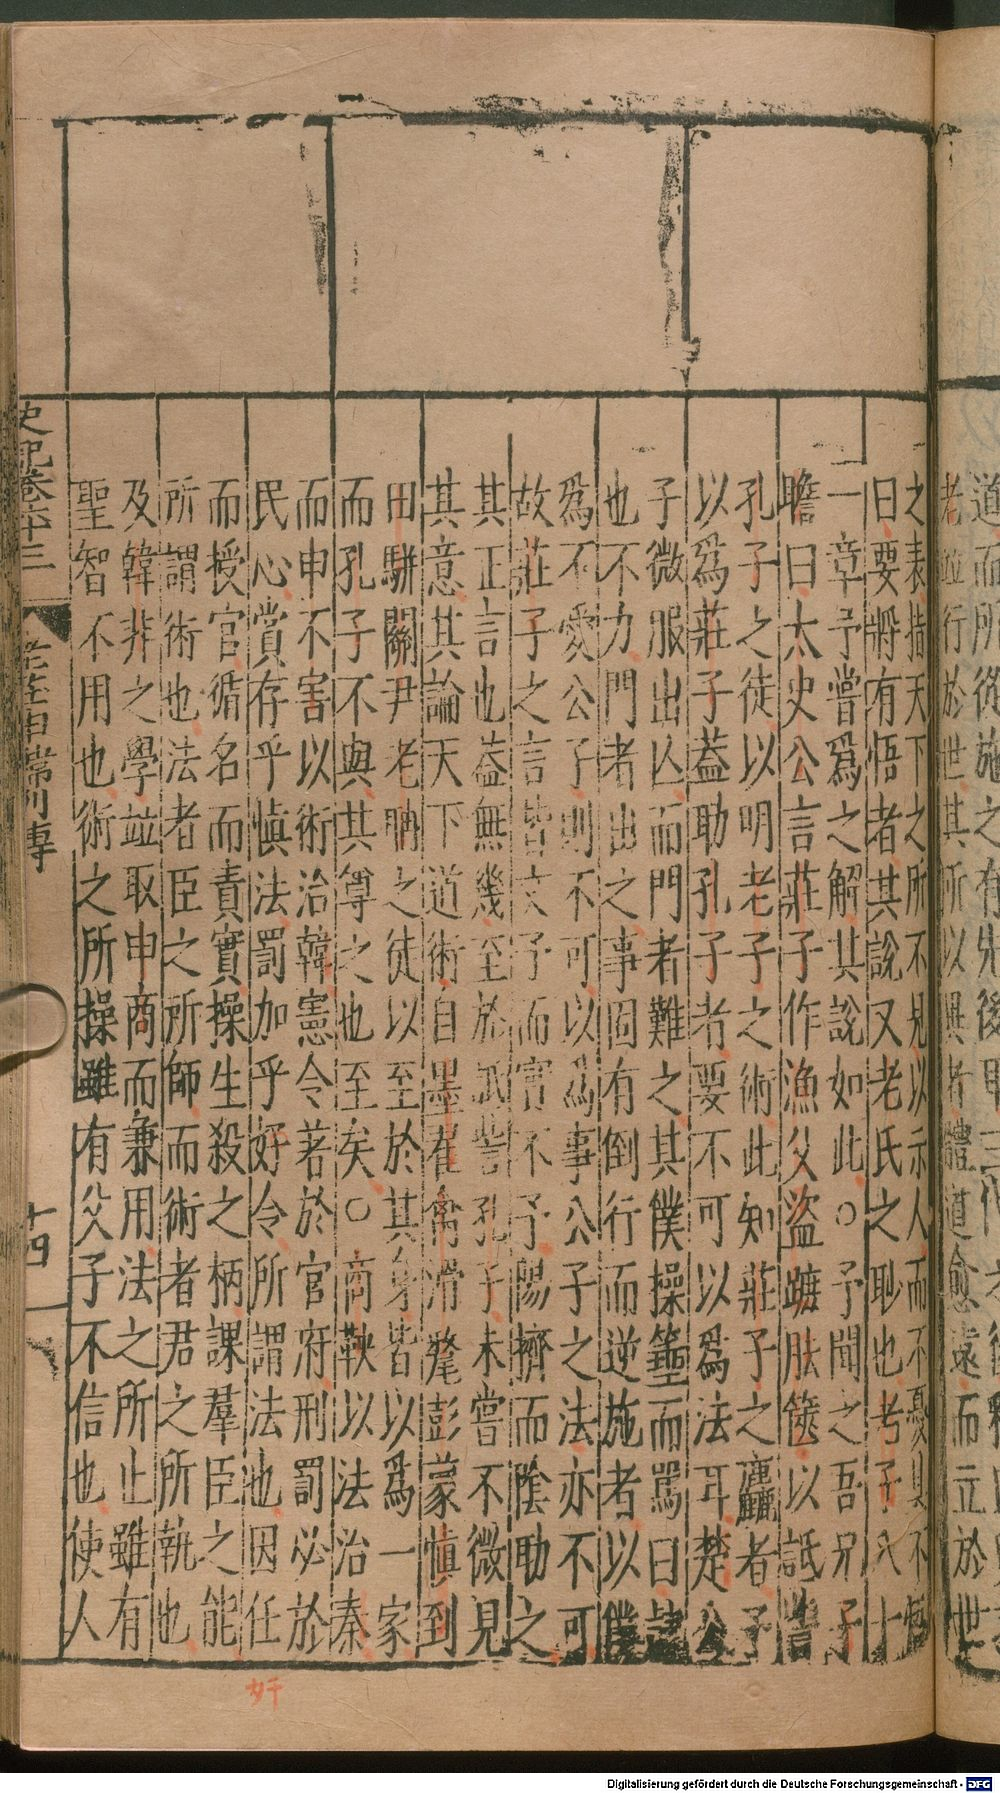 道而所從施之有先後
老並行於世其所以異者體道愈遠而立於世
之表措天下之所不見以示人而不憂其不悟
曰要將有悟者其說又老氏之恥也考子八十
一章予嘗爲之解其說如此○予聞之吾兄子
瞻曰太史公言莊子作漁父盜蹠胠篋以詆訾
孔子之徒以明老子之術此知莊子之麤者子
以爲莊子葢助孔子者要不可以爲法耳楚公
子微服出亾而門者難之其僕操箠而罵曰隸
也不力門者出之事固有倒行而逆施者以僕
爲不愛公子則不可以爲事公子之法亦不可
故莊子之言皆文予而實不予陽擠而陰助之
其正言也葢無幾至於詆訾孔子未嘗不微見
其意其論天下道術自墨翟禽滑氂彭蒙慎到
田駢關尹老聃之徒以至於其身皆以爲一家
而孔子不與其尊之也至矣○商鞅以法治秦
而申不害以術治韓憲令著於官府刑罰必於
民心賞存乎慎法罰加乎好令所謂法也因任
而授官循名而責實操生殺之柄課羣臣之能
所謂術也法者臣之所師而術者君之所執也
及韓非之學竝取申商而兼用法之所止雖有
聖智不用也術之所操雖有父子不信也使人
史記卷六十三
老莊申韓列傳
十四
奸
Digitalisierung gefördert durch die Deutsche Forschungsgemeinschaft - DFG